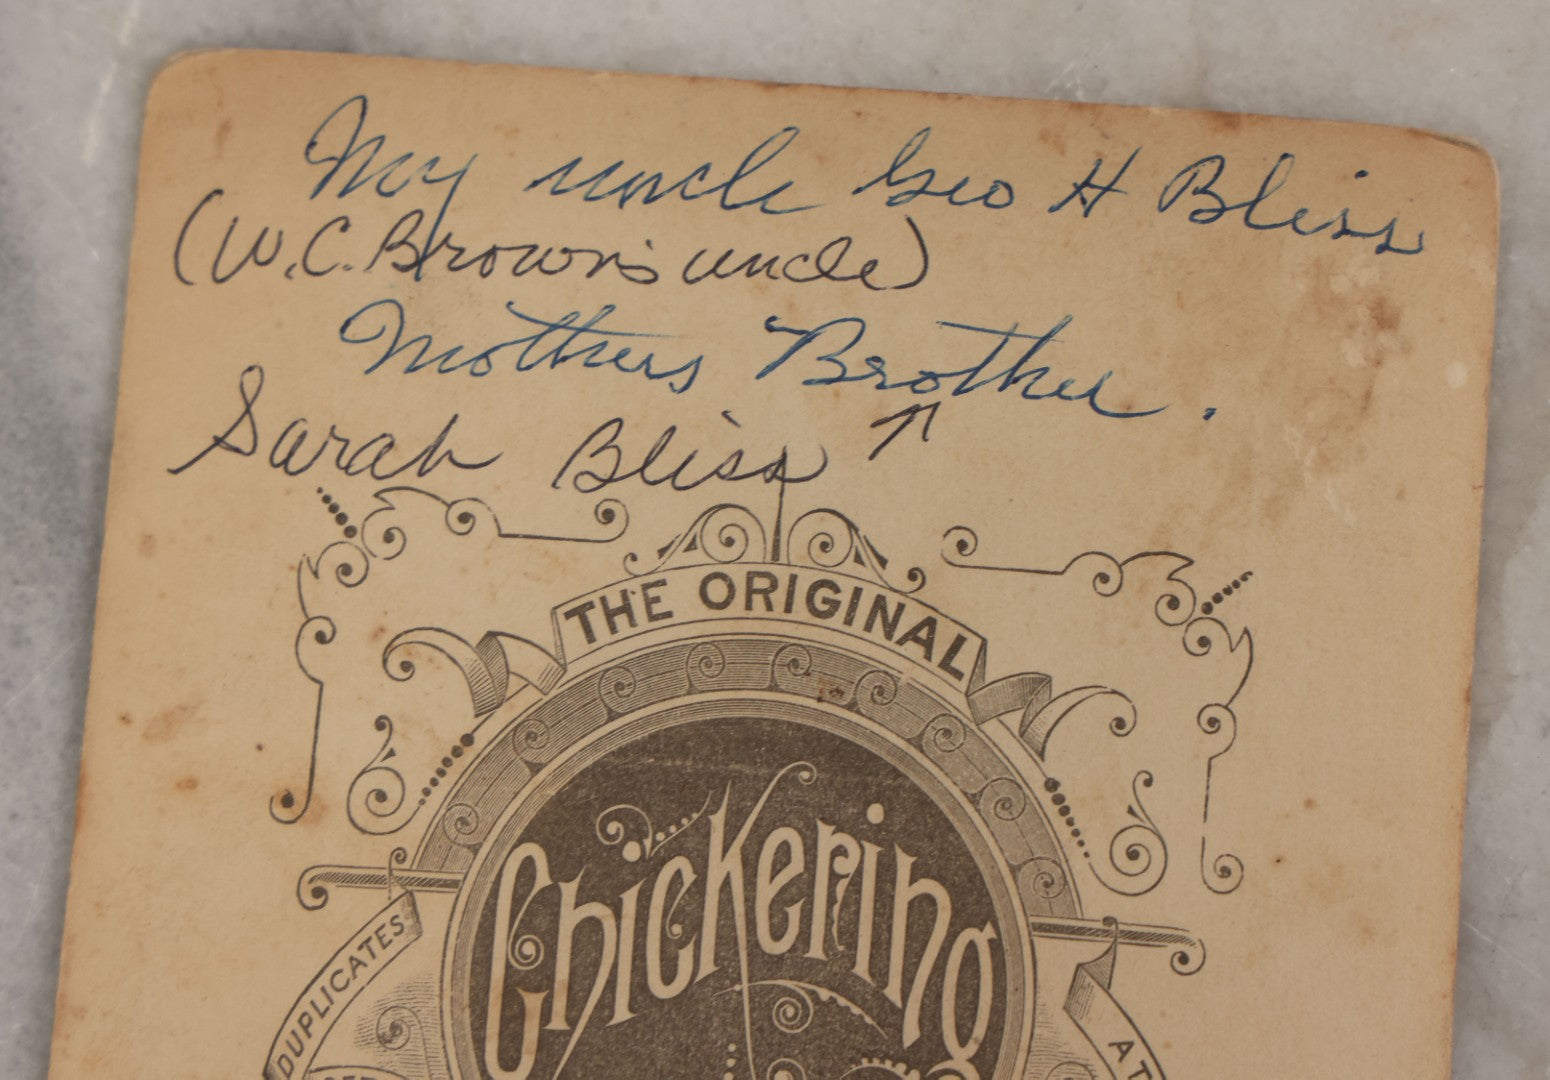 My uncle Geo H Bliss
(W.C. Brown's uncle)
Mothers Brother.
Sarah Bliss ↑
THE ORIGINAL
Chickering
DUPLICATES
AT